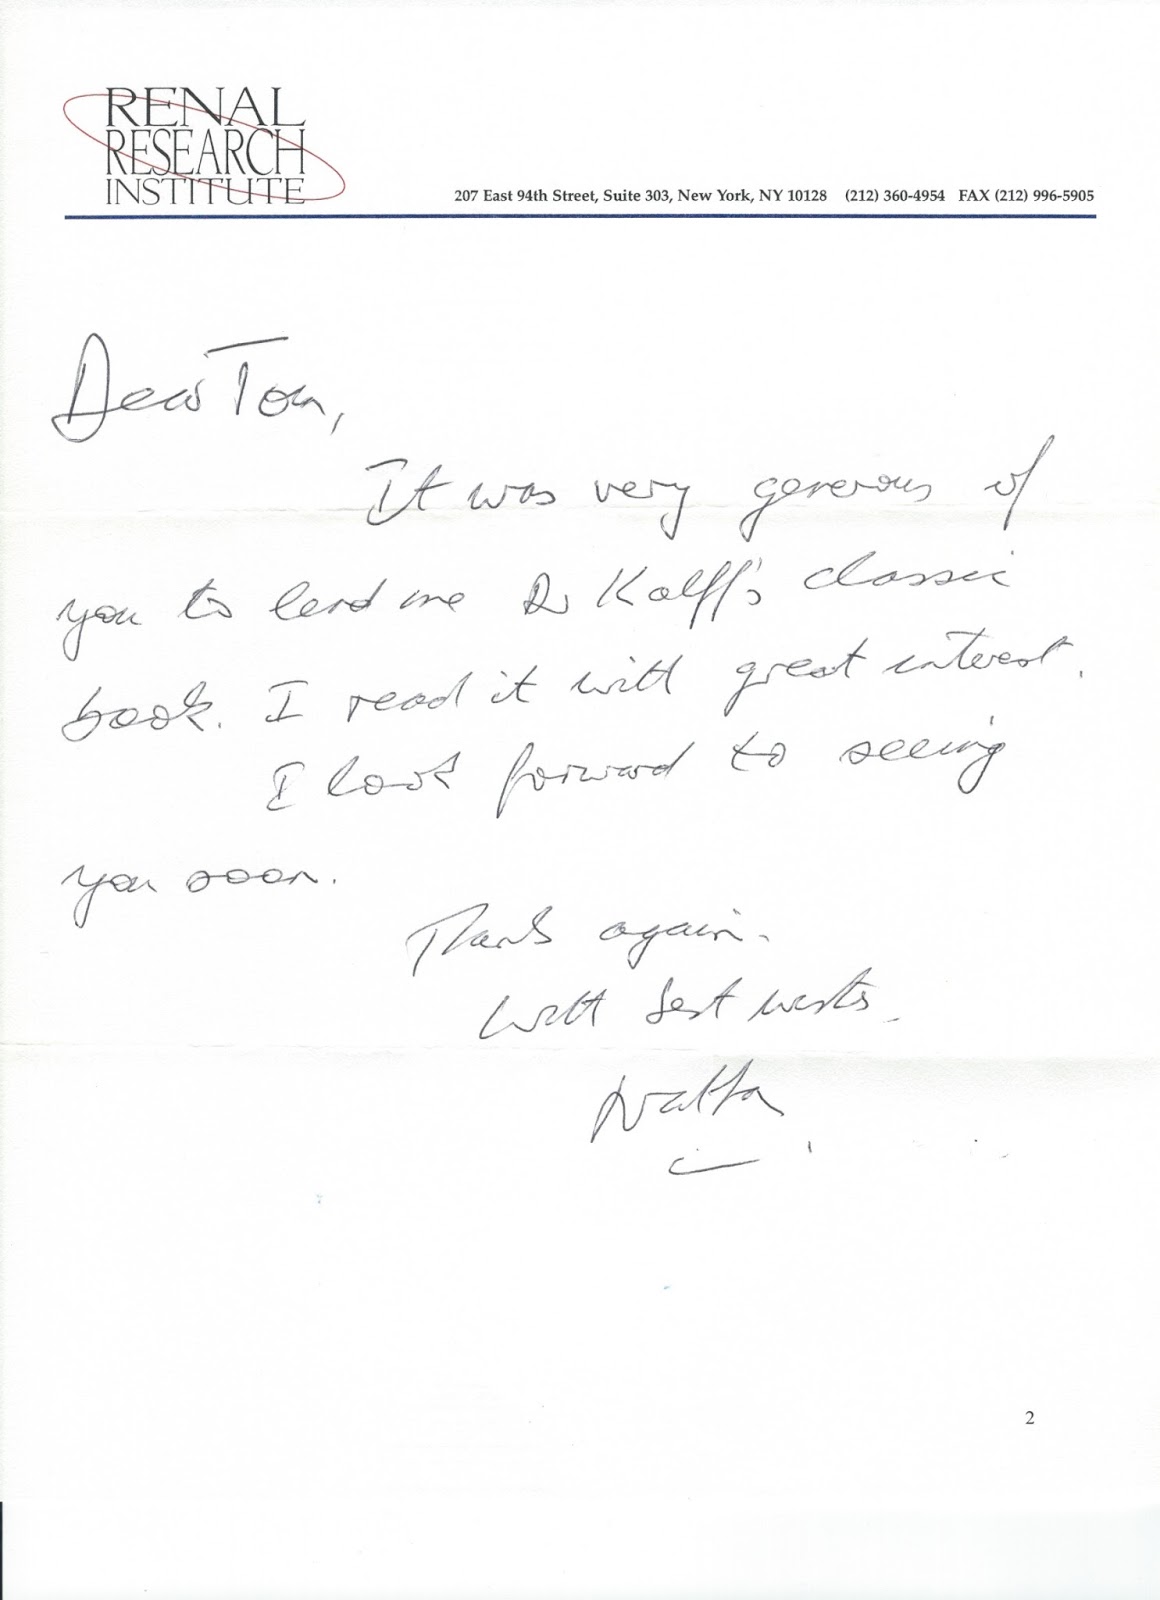 RENAL
RESEARCH
INSTITUTE
207 East 94th Street, Suite 303, New York, NY 10128 (212) 360-4954 FAX (212) 996-5905
Dear Tom,
It was very generous of
you to lend me Dr Kolff's classic
book. I read it with great interest.
I look forward to seeing
you soon.
Thanks again.
With best wishes.
2